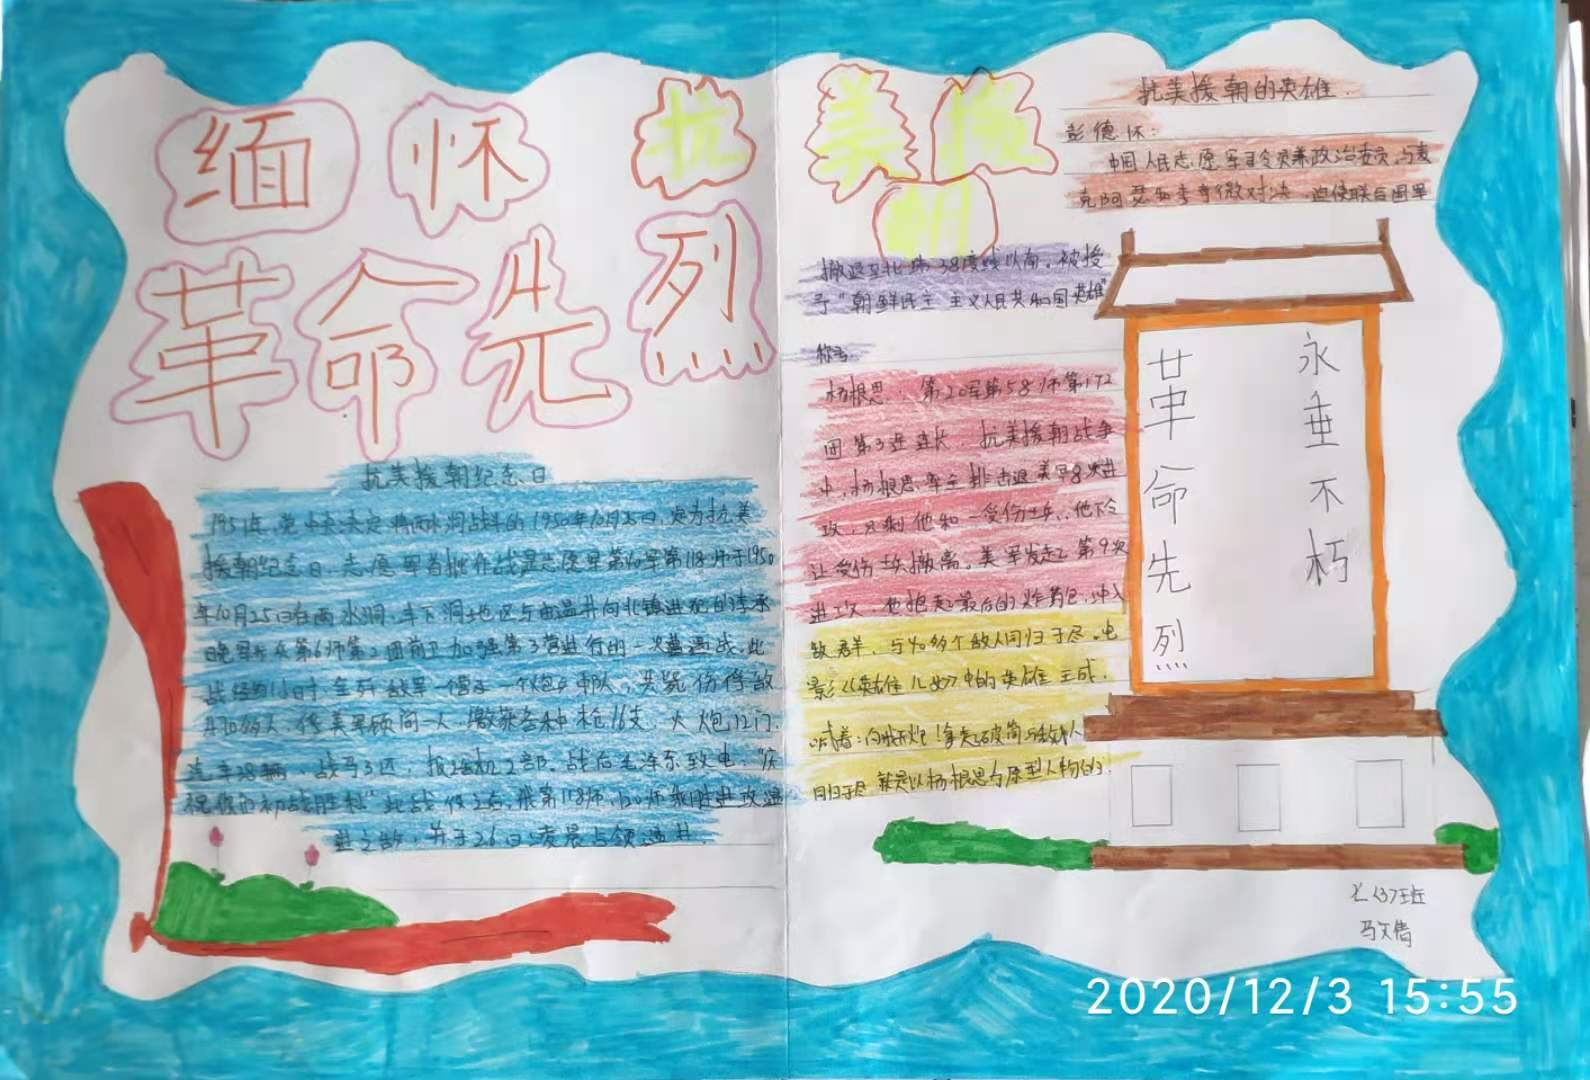 缅怀
革命先烈
抗美援
朝
抗美援朝纪念日
1951年,党中央决定将两水洞战斗的1950年10月25日,定为抗美
援朝纪念日.志愿军首批作战是志愿军第40军第118师于1950
年10月25日在两水洞、丰下洞地区与由温井向北镇进犯的李承
晚军示众第6师第2团前卫加强第3营进行的一次遭遇战.此
战经约1小时,全歼敌军一营及一个炮兵中队,共毙伤俘敌
多人,俘美军顾问一人.缴获各种枪支,火炮12门,
汽车38辆,战马3匹,报话机2部.战后毛泽东致电:“庆
祝你们初战胜利”此战役之后,我第118师、120师乘胜进攻温
井之敌,并于26日凌晨占领温井.
抗美援朝的英雄.
彭德怀:
中国人民志愿军司令员兼政治委员,与麦
克阿瑟和李奇微对决,迫使联合国军
撤退至北纬38度线以南。被授
予“朝鲜民主主义人民共和国英雄”
称号
杨根思:第20军第58师第172
团第3连连长.抗美援朝战争
中,杨根思率主排击退美军8次进
攻,只剩他和一受伤士兵.他下令
让受伤士兵撤离。美军发起第9次
进攻,他抱起最后的炸药包,冲入
敌群,与40多个敌人同归于尽.电
影《英雄儿女》中的英雄王成,
喊着:向我开炮!拿起破筒与敌人
同归于尽就是以杨根思为原型人物的.
永垂不朽
革命先烈
七、37班
马文倩
2020/12/3 15:55